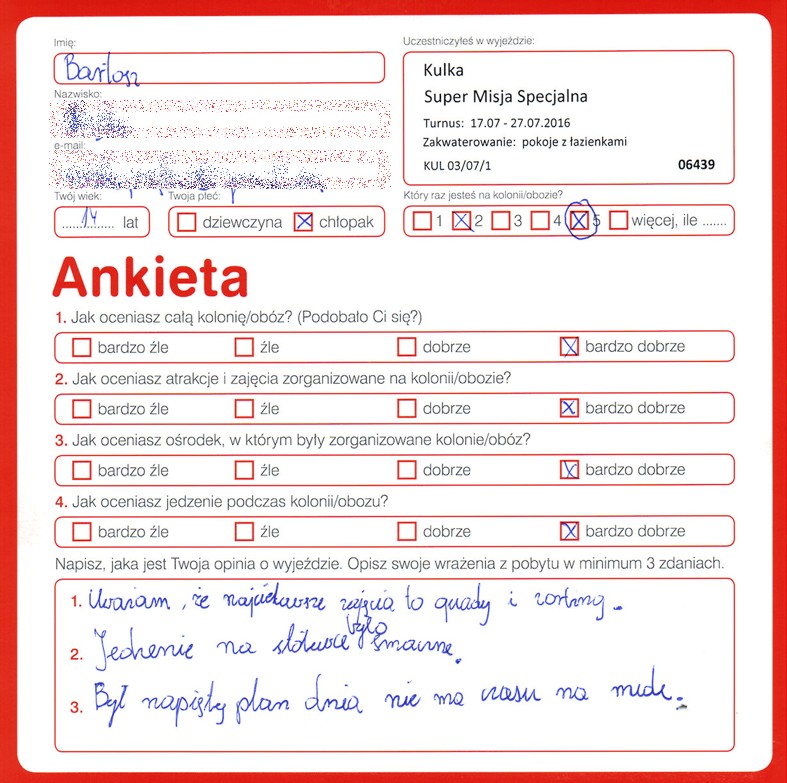 Imię:
Bartosz
Nazwisko:
e-mail:
Twój wiek:
14 lat
Twoja płeć:
dziewczyna chłopak
Uczestniczyłeś w wyjeździe:
Kulka
Super Misja Specjalna
Turnus: 17.07 - 27.07.2016
Zakwaterowanie: pokoje z łazienkami
KUL 03/07/1 06439
Który raz jesteś na kolonii/obozie?
1 2 3 4 5 więcej, ile .......
Ankieta
1. Jak oceniasz całą kolonię/obóz? (Podobało Ci się?)
bardzo źle źle dobrze bardzo dobrze
2. Jak oceniasz atrakcje i zajęcia zorganizowane na kolonii/obozie?
bardzo źle źle dobrze bardzo dobrze
3. Jak oceniasz ośrodek, w którym były zorganizowane kolonie/obóz?
bardzo źle źle dobrze bardzo dobrze
4. Jak oceniasz jedzenie podczas kolonii/obozu?
bardzo źle źle dobrze bardzo dobrze
Napisz, jaka jest Twoja opinia o wyjeździe. Opisz swoje wrażenia z pobytu w minimum 3 zdaniach.
1. Uważam, że najciekawsze zajęcia to quady i zorbing.
2. Jedzenie na stołówce było smaczne.
3. Był napięty plan dnia nie ma czasu na nudę.